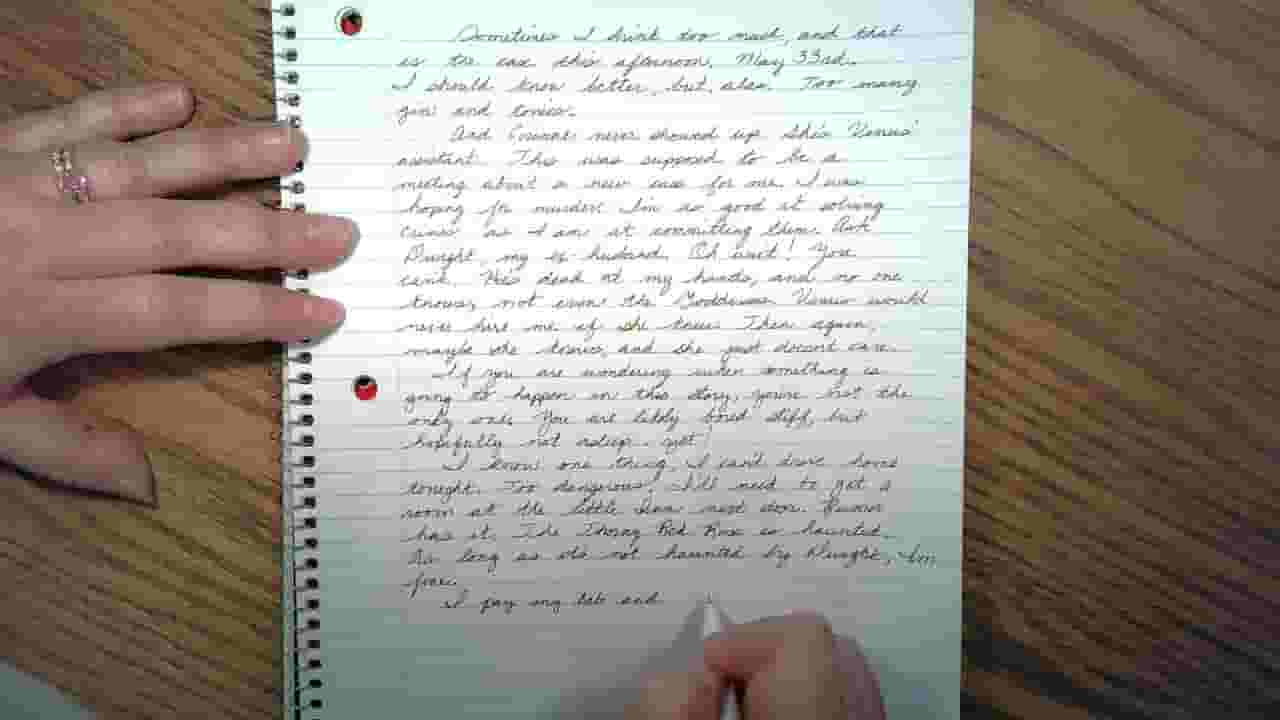 Sometimes I think too much, and that
is the case this afternoon, May 33rd.
I should know better, but, alas. Too many
gin and tonics.
And never showed up. She's Venus'
assistant. This was supposed to be a
meeting about a new case for me. I was
hoping for murder. I'm as good at solving
crimes as I am at committing them. Ask
Dwight, my ex husband. Oh wait! You
can't. He's dead at my hands, and no one
knows, not even the Goddesses. Venus would
never hire me if she knew. Then again,
maybe she knows, and she just doesn't care.
If you are wondering when something is
going to happen in this story, you're not the
only one. You are likely bored stiff, but
hopefully not asleep yet.
I know one thing, I can't drive home
tonight. Too dangerous! I'll need to get a
room at the little Inn next door. Rumor
has it, The Thorny Red Rose is haunted.
As long as it's not haunted by Dwight, I'm
fine.
I pay my tab and